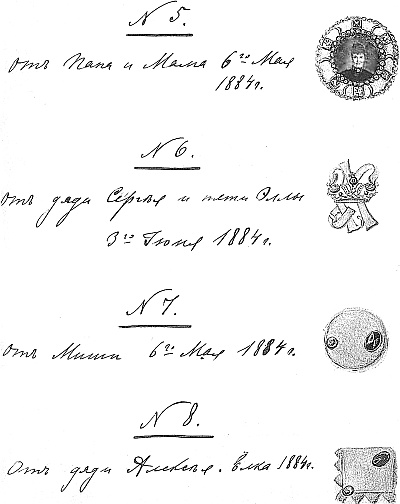 N 5.
отъ Папа и Мама 6го Мая
1884 г.
N 6.
отъ дяди Сергѣя и тети Эллы
3го Iюня 1884 г.
N 7.
отъ Миши 6го Мая 1884 г.
N 8.
Отъ дяди Алексѣя. Ёлка 1884 г.